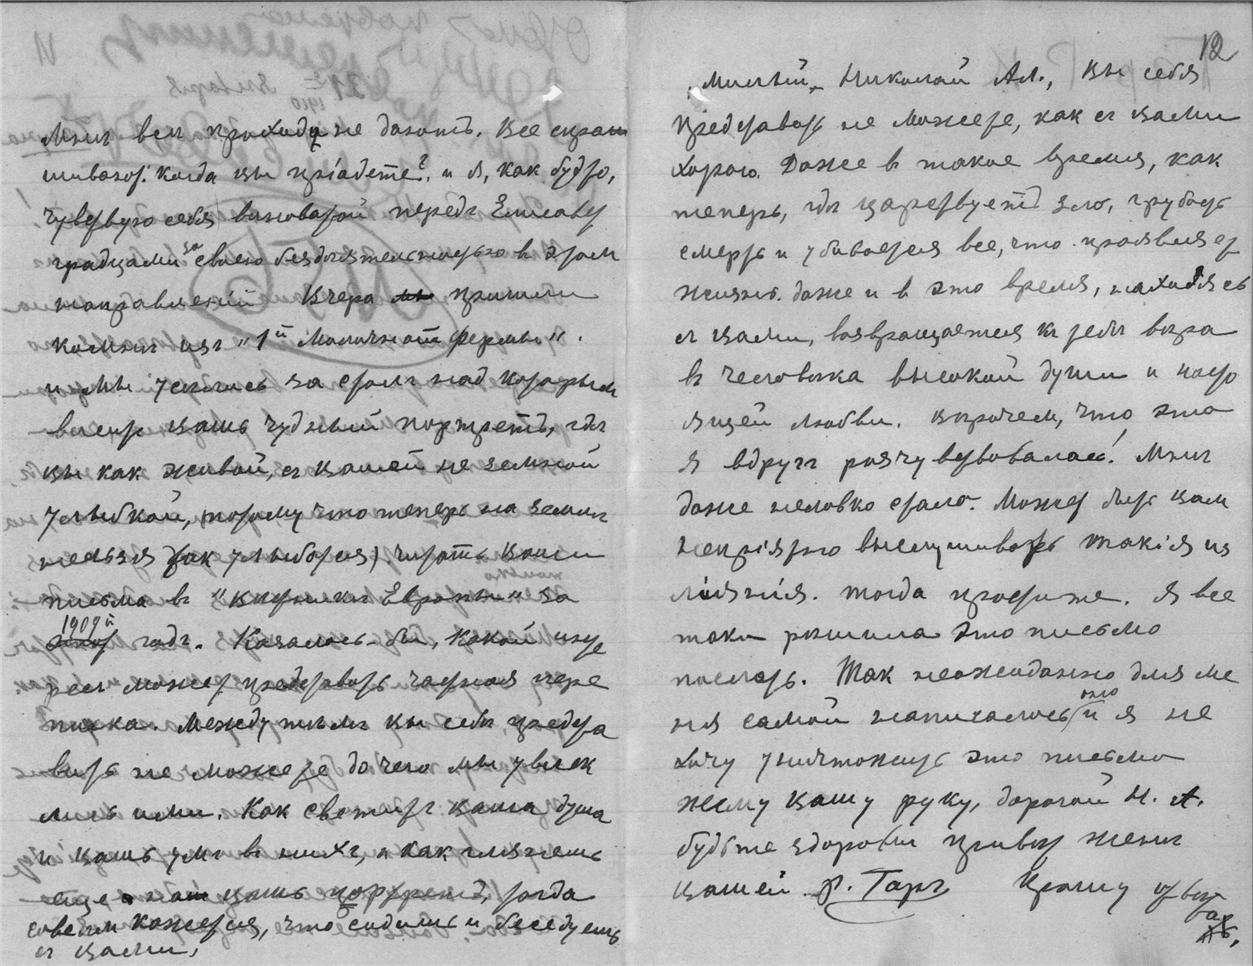 Мнѣ всѣ прохода не даютъ. Все спра
шиваютъ: когда вы пріѣдете? и я, как будто,
чувствую себя виноватой передъ Елисавет
градцами за свою бездѣятельность в этом
направленіи Вчера мы пришли
комнѣ изъ "1й Молочной Фермы".
и мы уселись за столъ над которым
висит вашъ чудный портретъ, гдѣ
вы как живой, съ вашей не земной
улыбкой, (потому что теперь на землѣ
нельзя так улыбаться) читать ваши
письма в "Вѣстникѣ Европы" за
1909й годъ. Казалось бы, какой инте
рес может представить частная пере
писка. Между тѣмъ вы себѣ предста
вить не можете до чего мы увлек
лись ими. Как светитъ ваша душа
и вашъ умъ в нихъ, а как глянешь
еще на вашъ портретъ, тогда
совсѣм кажется, что сидишь и беседуешь
съ вами.
12
Милый, Николай Ал., вы себѣ
представить не можете, как съ вами
хорошо. Даже в такое время, как
теперь, гдѣ царствуетъ зло, грубость
смерть и убивается все, что проявляет
жизнь. даже и в это время, находясь
съ вами, возвращается к тебѣ вѣра
в человѣка высокой души и насто
ящей любви. Впрочем, что это
я вдругъ расчувствовалась! Мнѣ
даже неловко стало. Может быть вам
непріятно выслушивать такія из
ліянія. тогда простите. Я все
таки рѣшила это письмо
послать. Так неожиданно для ме
ня самой написалось оно и я не
хочу уничтожить это письмо
жму вашу руку, дорогой Н. А.
будьте здоровы привѣт женѣ
вашей Р. Таръ Прошу отвѣ
та